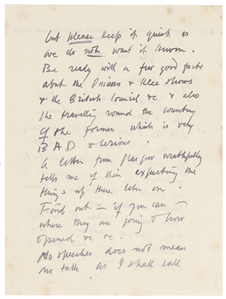 but please keep it quiet as
we do not want it known.
Be ready with a few good facts
about the Picasso & Klee shows
& the British Council &c & also
the travelling round the country
of the former which is very
BAD & serious.
A letter from Glasgow wrathfully
tells me of their expecting the
things up there later on.
Find out — if you can —
where they are going & how
opened &c &c.
No speeches does not mean
no talk as I shall call